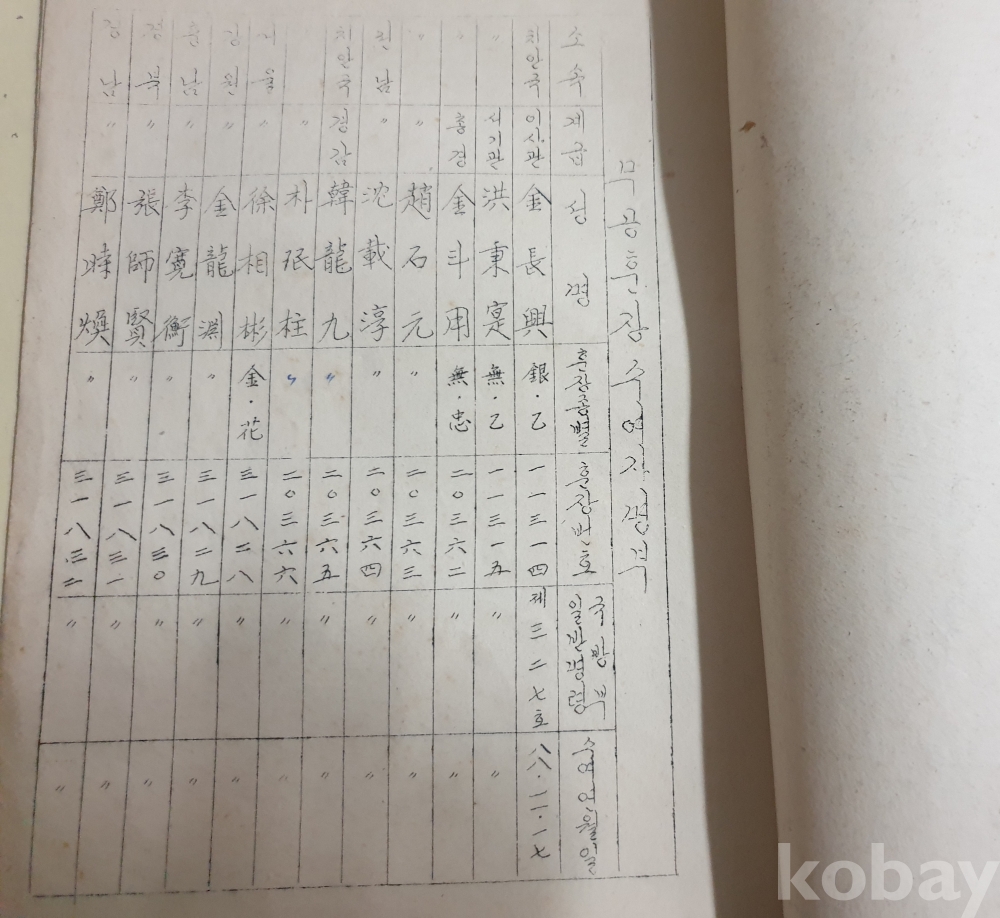 무공훈장수여자명부
소속 계급 성명 훈장종별 훈장번호 국방부일반명령 수여년월일
치안국 이사관 金長興 銀·乙 一一三一四 제三二七호
〃 서기관 洪秉寔 無·乙 一一三一五 〃 〃
〃 총경 金斗用 無·忠 二〇三六二 〃 〃
〃 〃 趙石元 〃 二〇三六三 〃 〃
전남 〃 沈載淳 〃 二〇三六四 〃 〃
치안국 경감 韓龍九 〃 二〇三六五 〃 〃
〃 朴珉柱 〃 二〇三六六 〃 〃
서울 〃 徐相彬 金·花 三一八二八 〃 〃
강원 〃 金龍淵 〃 三一八二九 〃 〃
충남 〃 李寬衡 〃 三一八三〇 〃 〃
경북 〃 張師賢 〃 三一八三一 〃 〃
경남 〃 鄭時煥 〃 三一八三二 〃 〃
kobay